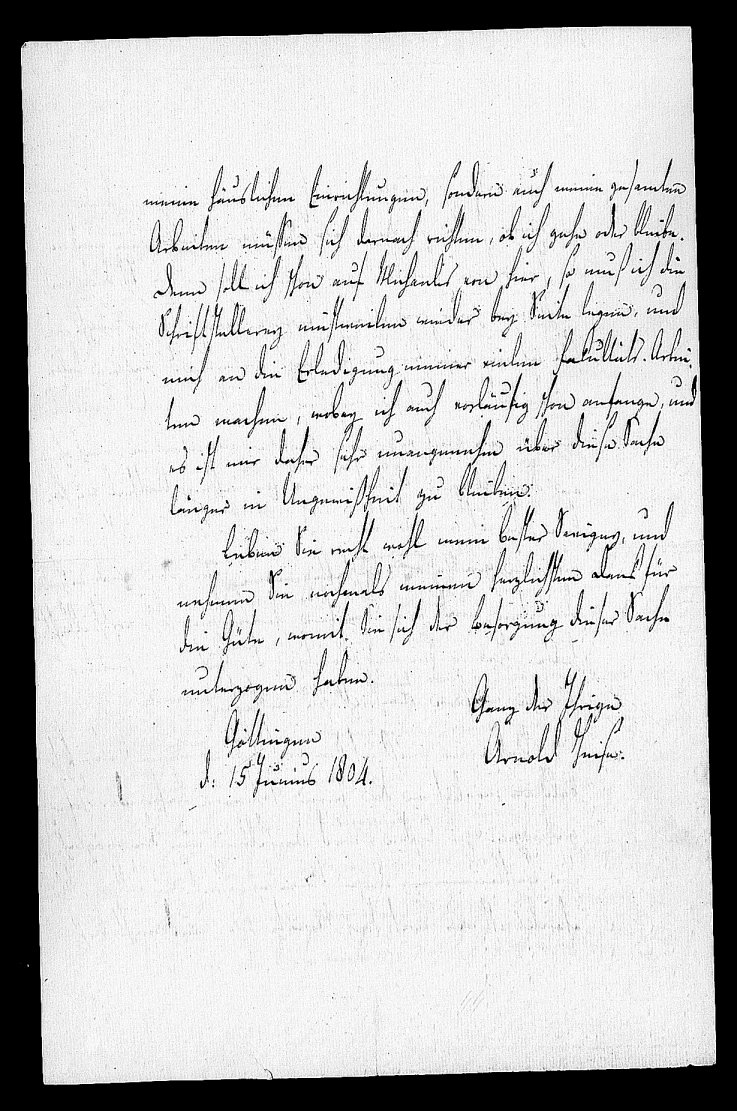 meine häuslichen Einrichtungen, sondern auch meine gesamten
Arbeiten müssen sich darnach richten, ob ich gehe oder bleibe.
Denn soll ich schon auf Michaelis von hier, so muß ich die
Schriftstellerey mittlerweilen wieder bey Seite legen, und
mich an die Erledigung immer vielen Facultäts-Arbei-
ten machen, wobey ich auch vorläufig schon anfange, und
es ist mir daher sehr unangenehm über diese Sache
länger in Ungewißheit zu bleiben.
Leben Sie recht wohl mein bester Savigny, und
nehmen Sie nochmals meinen herzlichsten Dank für
die Güte, womit Sie sich der Besorgung dieser Sache
unterzogen haben.
Ganz der Ihrige
Göttingen
Arnold Heise.
d. 15 Junius 1804.